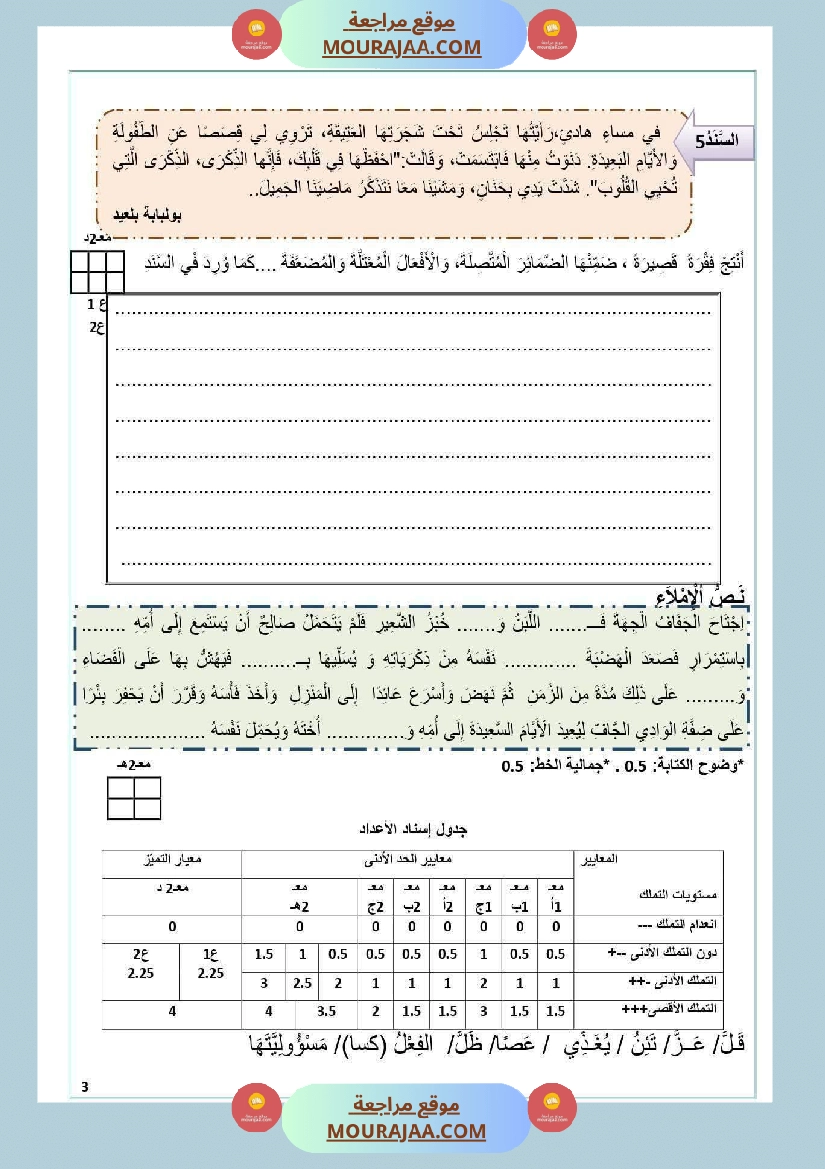 موقع مراجعة
MOURAJAA.COM
السَّنَدُ5
في مساءٍ هادئٍ،رَأَيْتُها تَجْلِسُ تَحْتَ شَجَرَتِهَا العَتِيقَةِ، تَرْوِي لِي قِصَصًا عَنِ الطُّفُولَةِ
وَالأَيَّامِ البَعِيدَةِ. دَنَوْتُ مِنْهَا فَابْتَسَمَتْ، وَقَالَتْ:"احْفَظْهَا فِي قَلْبِكَ، فَإِنَّها الذِّكْرَى، الذِّكْرَى الَّتِي
تُحْيِي القُلُوبَ". شَدَّتْ يَدِي بِحَنَانٍ، وَمَشَيْنَا مَعًا نَتَذَكَّرُ مَاضِيَنَا الجَمِيلَ..
بولبابة بلعيد
معـ2د
أُنْتِجُ فِقْرَةً قَصِيرَةً ، ضَمِّنْهَا الضَّمَائِرَ الْمُتَّصِلَةَ، وَالْأَفْعَالَ الْمُعْتَلَّةَ وَالْمُضَعَّفَةَ ....كَمَا وُرِدَ فْي السَّنَدِ
ع 1
ع2
نَـصُّ الْإِمْلَاءِ
اِجْتَاحَ الْجَفَافُ الْجِهَةَ فَـ....... اللَّبَنُ و....... خُبْزُ الشَّعِيرِ فَلَمْ يَتَحَمَّلْ صَالِحٌ أَنْ يَسْتَمِعَ إِلَى أُمِّهِ ........
بِاسْتِمْرَارٍ فَصَعَدَ الْهَضْبَةَ ............ نَفْسَهُ مِنْ ذِكْرَيَاتِهِ وَ يُسَلِّيهَا بِـ.......... فَيَهُشُّ بِهَا عَلَى الْفَضَاءِ
وَ......... عَلَى ذَلِكَ مُدَّةً مِنَ الزَّمَنِ ثُمَّ نَهَضَ وَأَسْرَعَ عَائِدًا إِلَى الْمَنْزِلِ وَأَخَذَ فَأْسَهُ وَقَرَّرَ أَنْ يَحْفِرَ بِئْرًا
عَلَى ضِفَّةِ الوَادِي الجَّافِّ لِيُعِيدَ الْأَيَّامَ السَّعِيدَةَ إِلَى أُمِّهِ وَ.............. أُخْتَهُ وَيُحَمِّلَ نَفْسَهُ ....................
*وضوح الكتابة: 0.5 . *جمالية الخط: 0.5
معـ2هـ
جدول إسناد الأعداد
المعايير معايير الحد الأدنى معيار التميّز
مستويات التملك معـ 1أ معـ 1ب معـ 1ج معـ 2أ معـ 2ب معـ 2ج معـ 2هـ معـ2 د
انعدام التملك --- 0 0 0 0 0 0 0 0
دون التملك الأدنى --+ 0.5 0.5 1 0.5 0.5 0.5 0.5 1 1.5 ع1 2.25 ع2 2.25
التملك الأدنى -++ 1 1 2 1 1 1 2 2.5 3
التملك الأقصى+++ 1.5 1.5 3 1.5 1.5 2 3.5 4 4
قَـلَّ/ عَــزَّ/ تَئِنُّ / يُغَـذِّي / عَصًا/ ظَلَّ/ الفِعْلُ (كسا)/ مَسْؤُولِيَّتَهَا
3
موقع مراجعة
MOURAJAA.COM